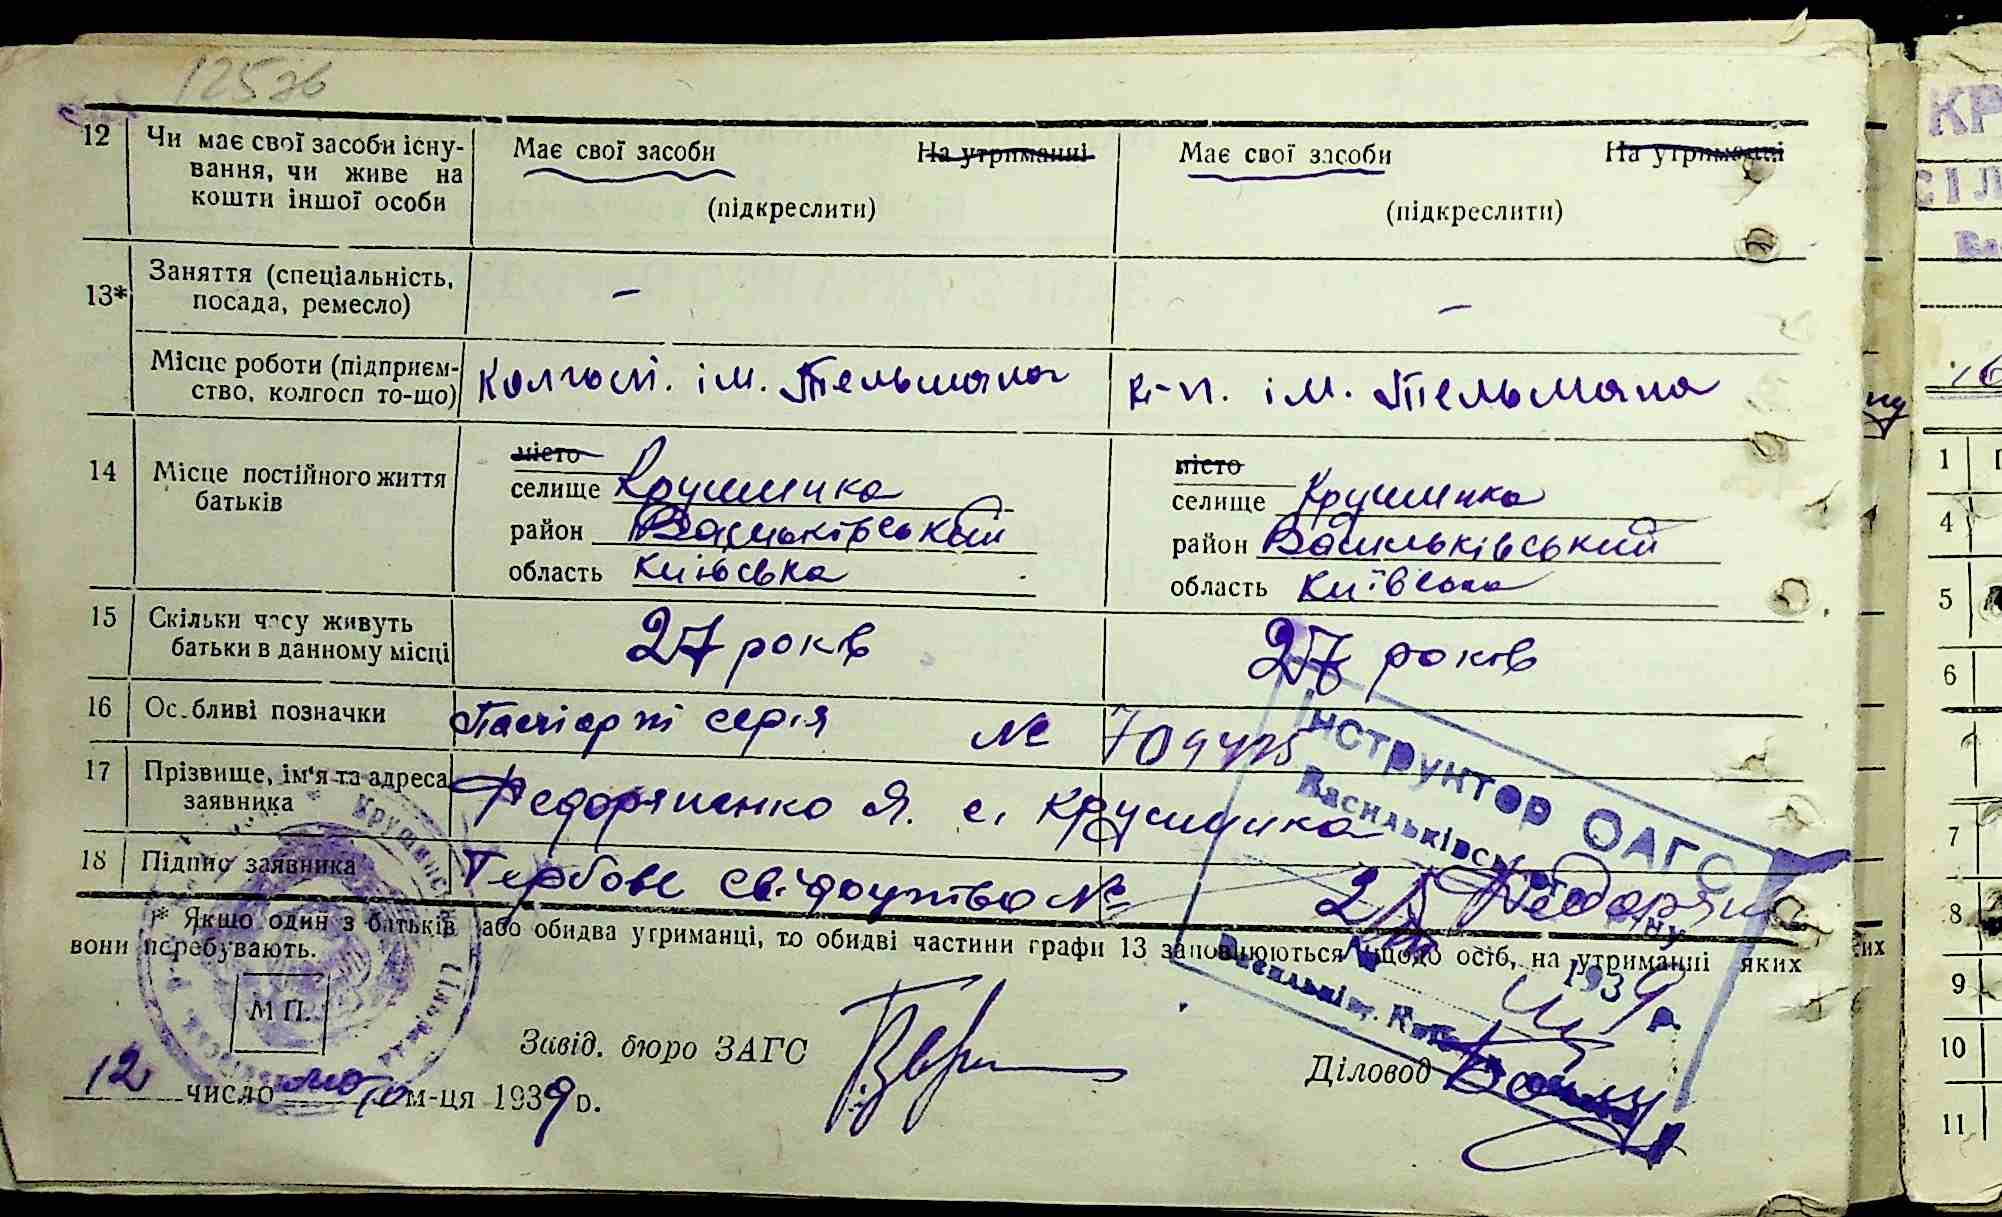 125зв
12 Чи має свої засоби існу- Має свої засоби На утриманні Має свої засоби На утриманні
вання, чи живе на
кошти іншої особи (підкреслити) (підкреслити)
13* Заняття (спеціальність, – –
посада, ремесло)
Місце роботи (підприєм- Колгосп. ім. Тельмана к-п. ім. Тельмана
ство, колгосп то-що)
14 Місце постійного життя місто місто
батьків селище Крушинка селище Крушинка
район Васильківський район Васильківський
область Київська область Київська
15 Скільки часу живуть 27 років 27 років
батьки в данному місці
16 Особливі позначки Паспорт серія №
17 Прізвище, ім'я та адреса Федоряченко Я. с. Крушинка
заявника
18 Підпис заявника Гербове свідоцтво №
Інструктор ОАГС
Васильківськ
1* Якщо один з батьків або обидва утриманці, то обидві частини графи 13 заповнюються щодо осіб, на утриманні яких
вони перебувають.
193 р.
М П.
Завід. бюро ЗАГС Діловод
12 число м-ця 1939 р.
КР
СІЛ
1
4
5
6
7
8
9
10
11